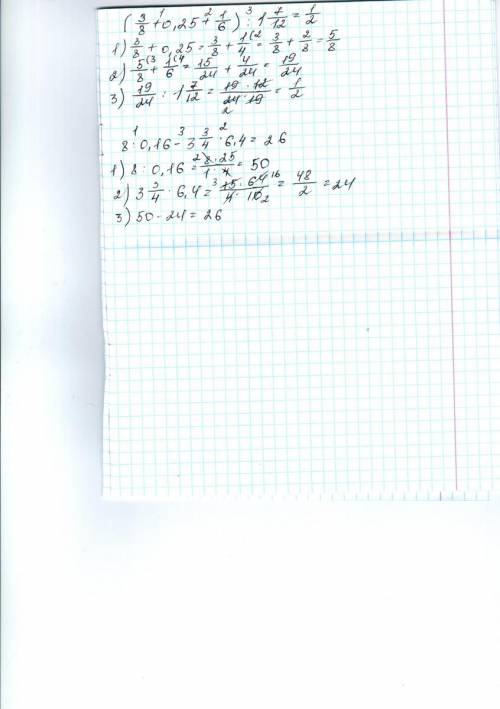 (3/8 + 0,25 + 1/6) : 1 7/12 = 1/2
1) 3/8 + 0,25 = 3/8 + 1/4 = 3/8 + 2/8 = 5/8
2) 5/8 + 1/6 = 15/24 + 4/24 = 19/24
3) 19/24 : 1 7/12 = 19 · 12/24 · 19 = 1/2
8 : 0,16 - 3 3/4 · 6,4 = 26
1) 8 : 0,16 = 8 · 25/1 · 4 = 50
2) 3 3/4 · 6,4 = 15 · 64/4 · 10 = 48/2 = 24
3) 50 - 24 = 26